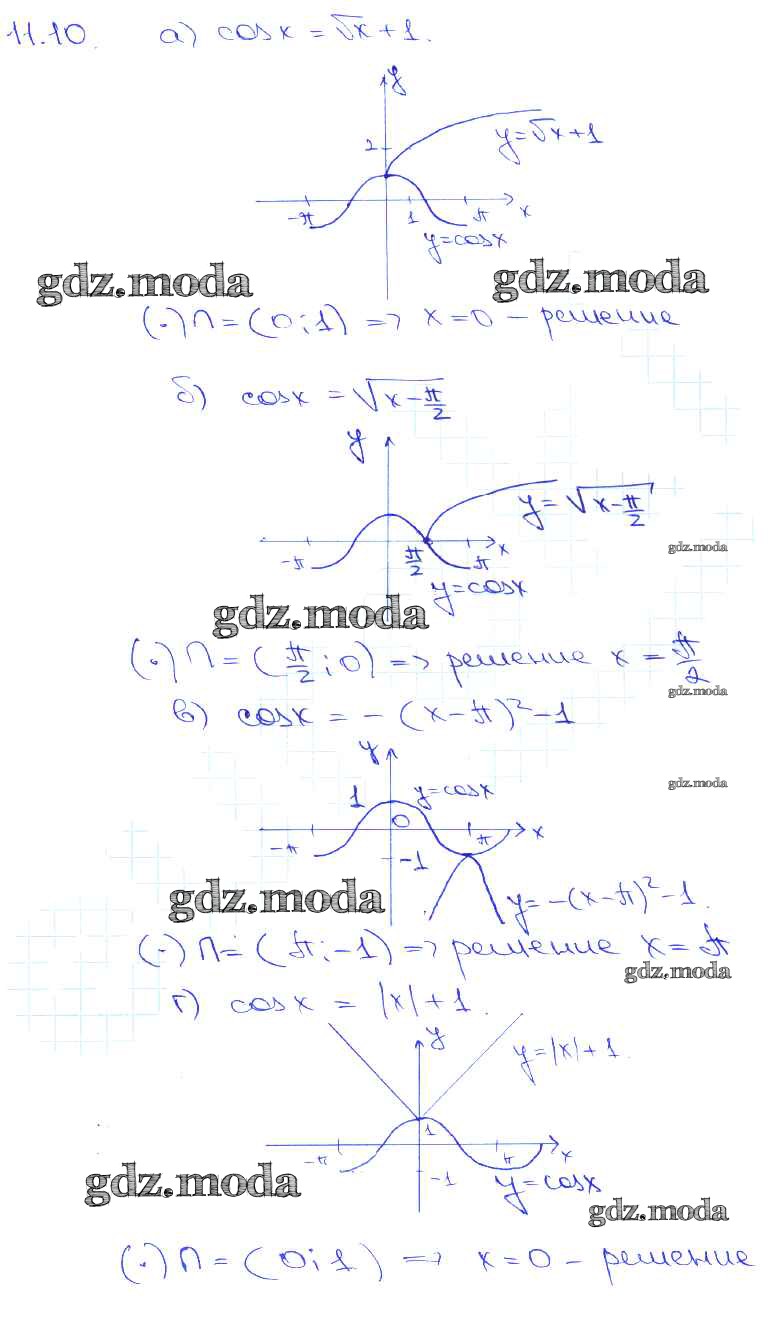 11.10. а) cosx = √x + 1.
y
2
y=√x+1
-π 1 π x
y=cosx
gdz.moda gdz.moda
(·)П=(0;1) => x=0 - решение
б) cosx = √(x-π/2)
y
y=√(x-π/2)
-π π/2 π x
gdz.moda
y=cosx
gdz.moda
(·)П=(π/2;0) => решение x = π/2
gdz.moda
в) cosx = -(x-π)²-1
y
gdz.moda
1 y=cosx
-π 0 π x
-1
gdz.moda y=-(x-π)²-1.
(·)П=(π;-1) => решение x=π
gdz.moda
г) cosx = |x|+1.
y
y=|x|+1.
1
-π π x
-1
gdz.moda y=cosx
gdz.moda
(·)П=(0;1) => x=0 - решение